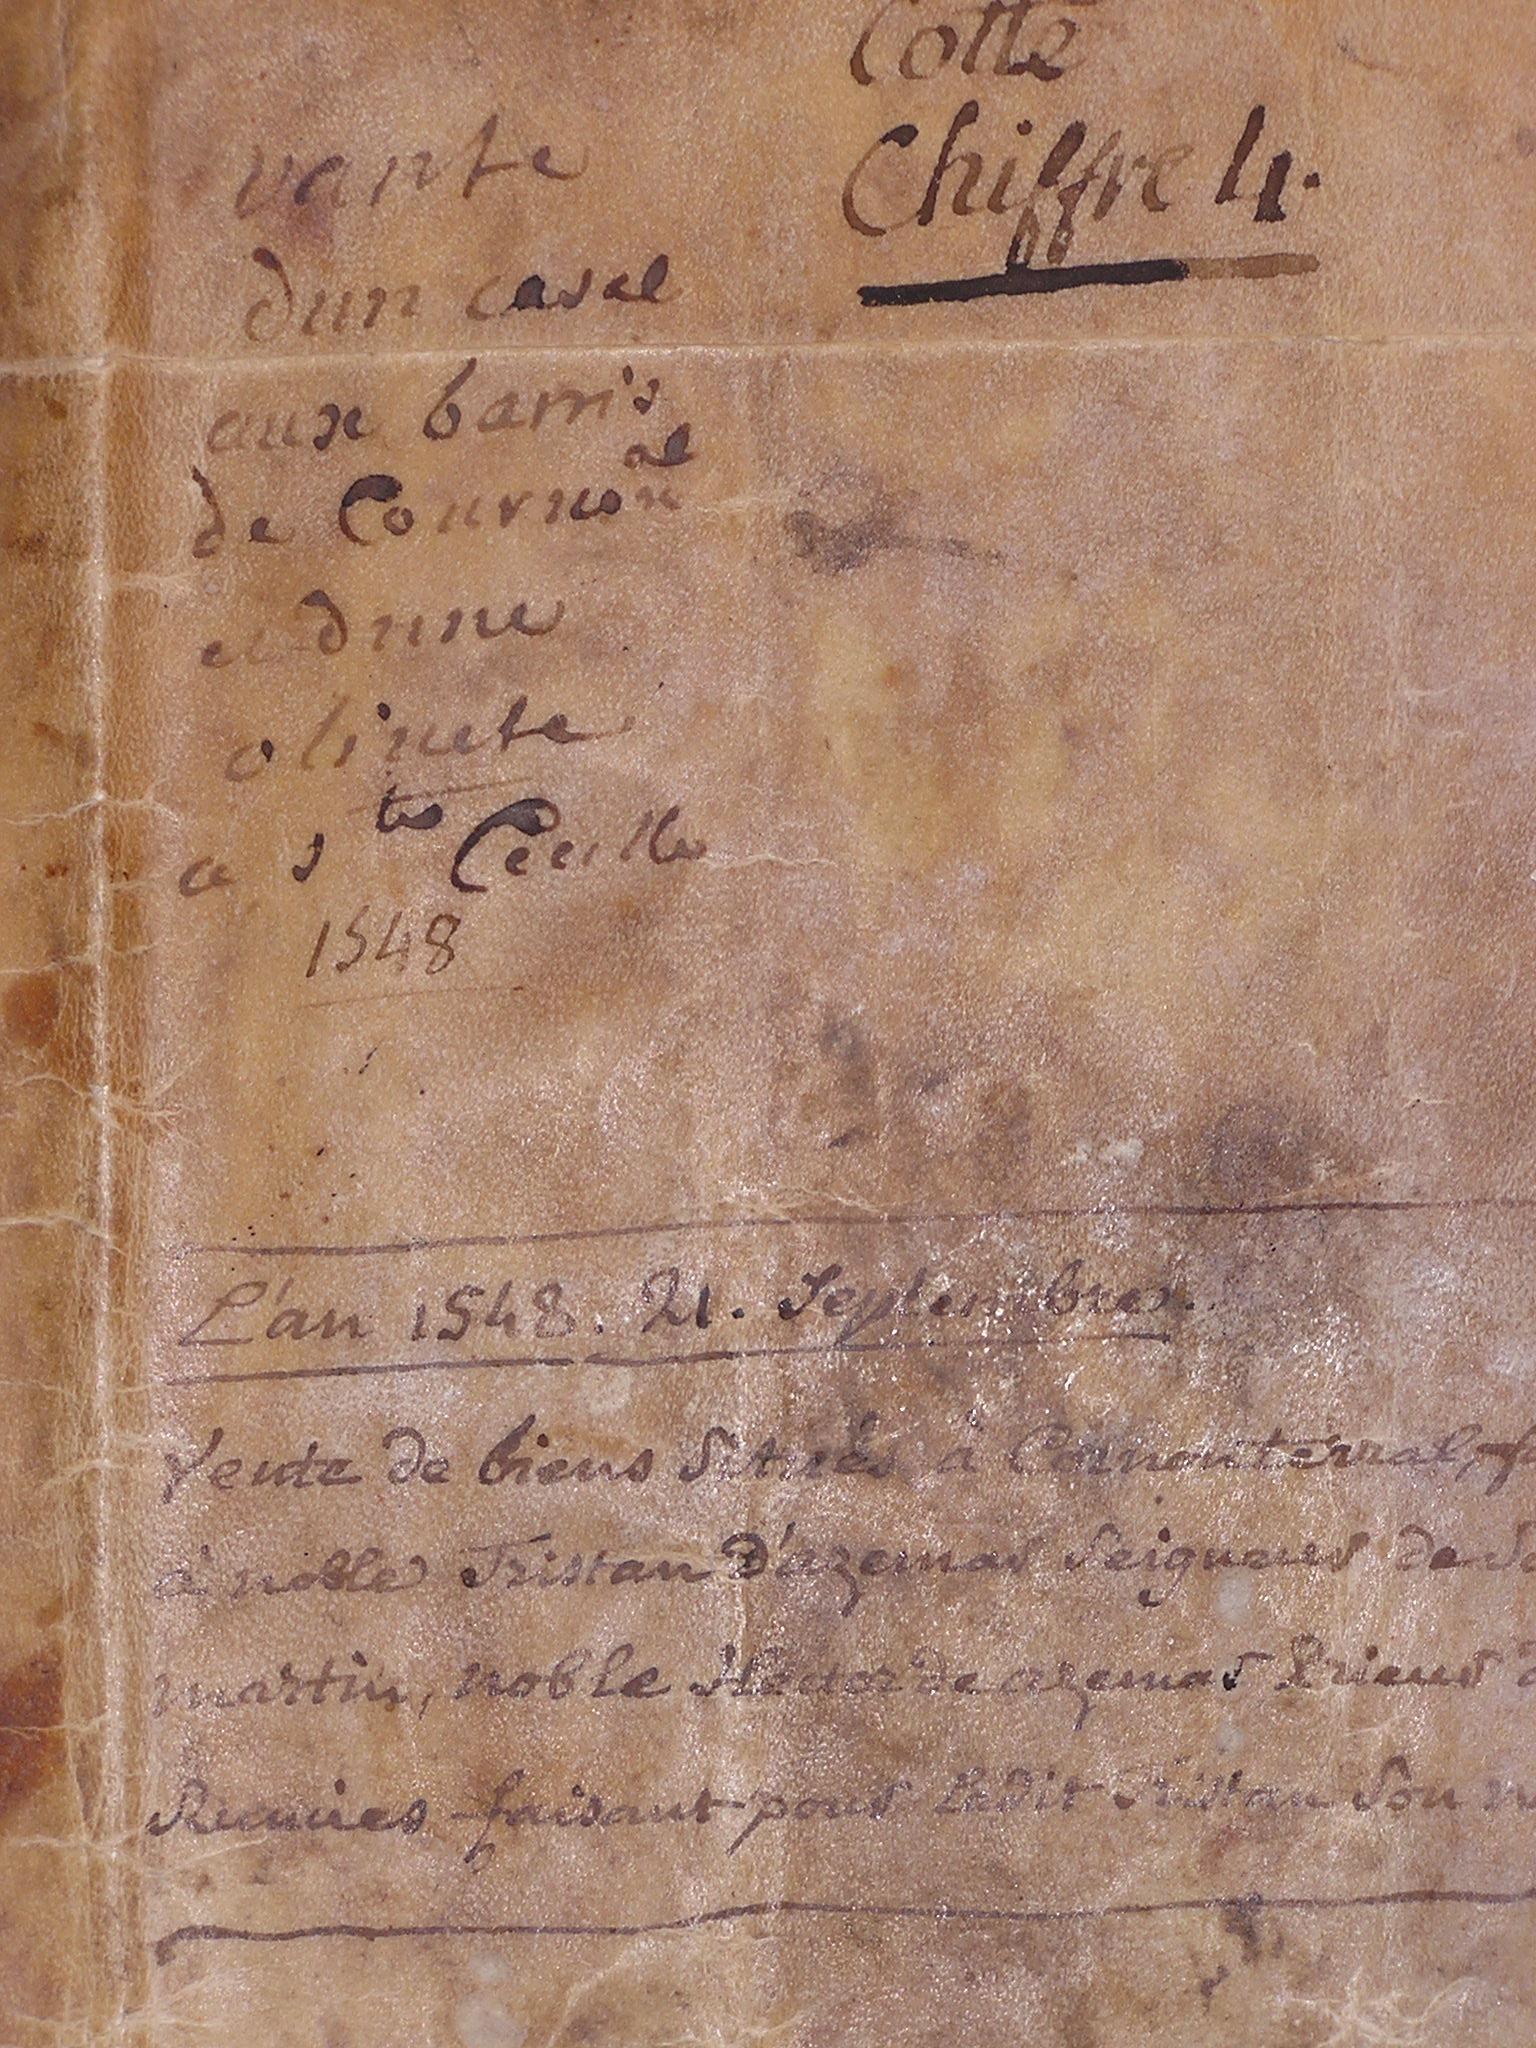 Cotte
Chiffre 4.
vante
dun casal
aux barris
de Cournon al
et dune
olivete
a s te Cecille
1548
L'an 1548. 21. Septembre.
Vente de biens situés à Cornonterral, f
à noble Tristan D'azemar Seigneur de S
martin, noble Hector de azemar Prieur d
faisant pour Ledit Tristan Son n